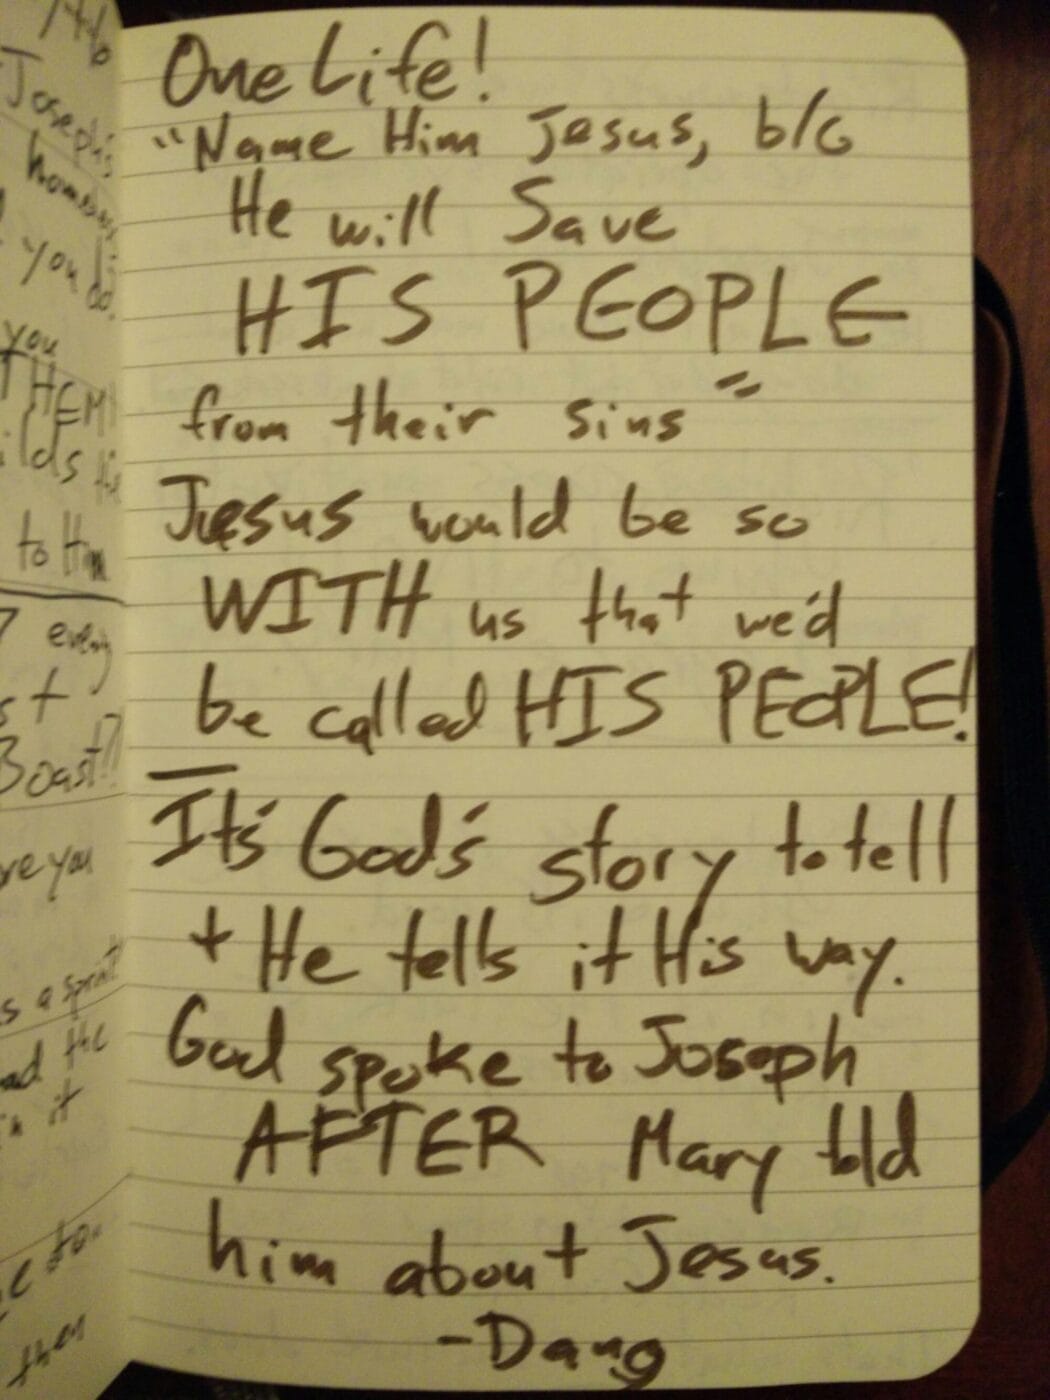 Joseph's
you do.
you
THEM
to Him
every
Boast!?
you
s a sprint
it
then
One Life!
"Name Him Jesus, b/c
He will Save
HIS PEOPLE
from their sins"
Jesus would be so
WITH us that we'd
be called HIS PEOPLE!
It's God's story to tell
+ He tells it His way.
God spoke to Joseph
AFTER Mary told
him about Jesus.
-Dang